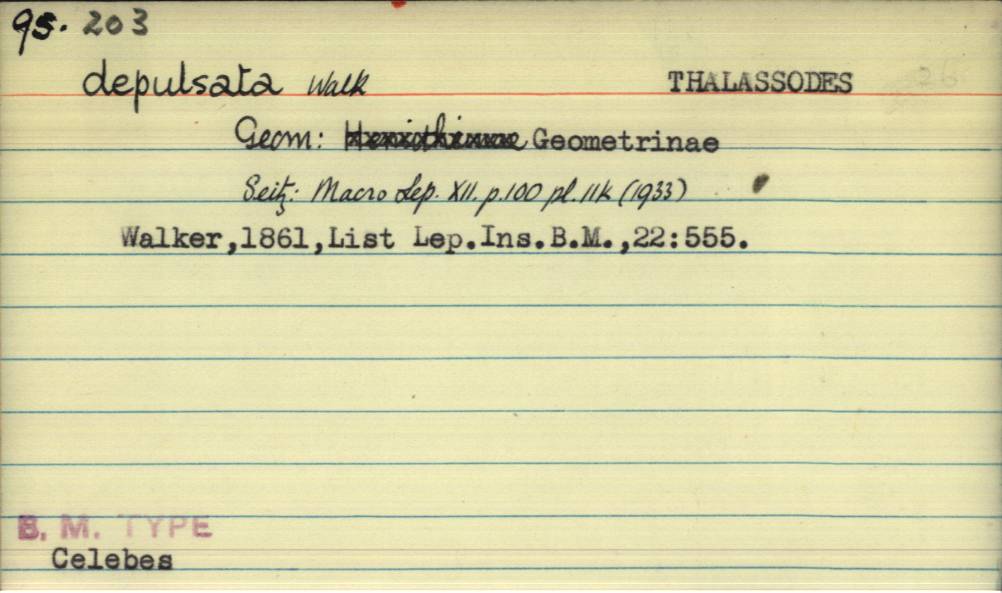 95. 203
depulsata Walk THALASSODES 26
Geom: Hemitheinae Geometrinae
Seitz: Macro Lep. XII. p.100 pl.11k (1933)
Walker,1861,List Lep.Ins.B.M.,22:555.
B. M. TYPE
Celebes